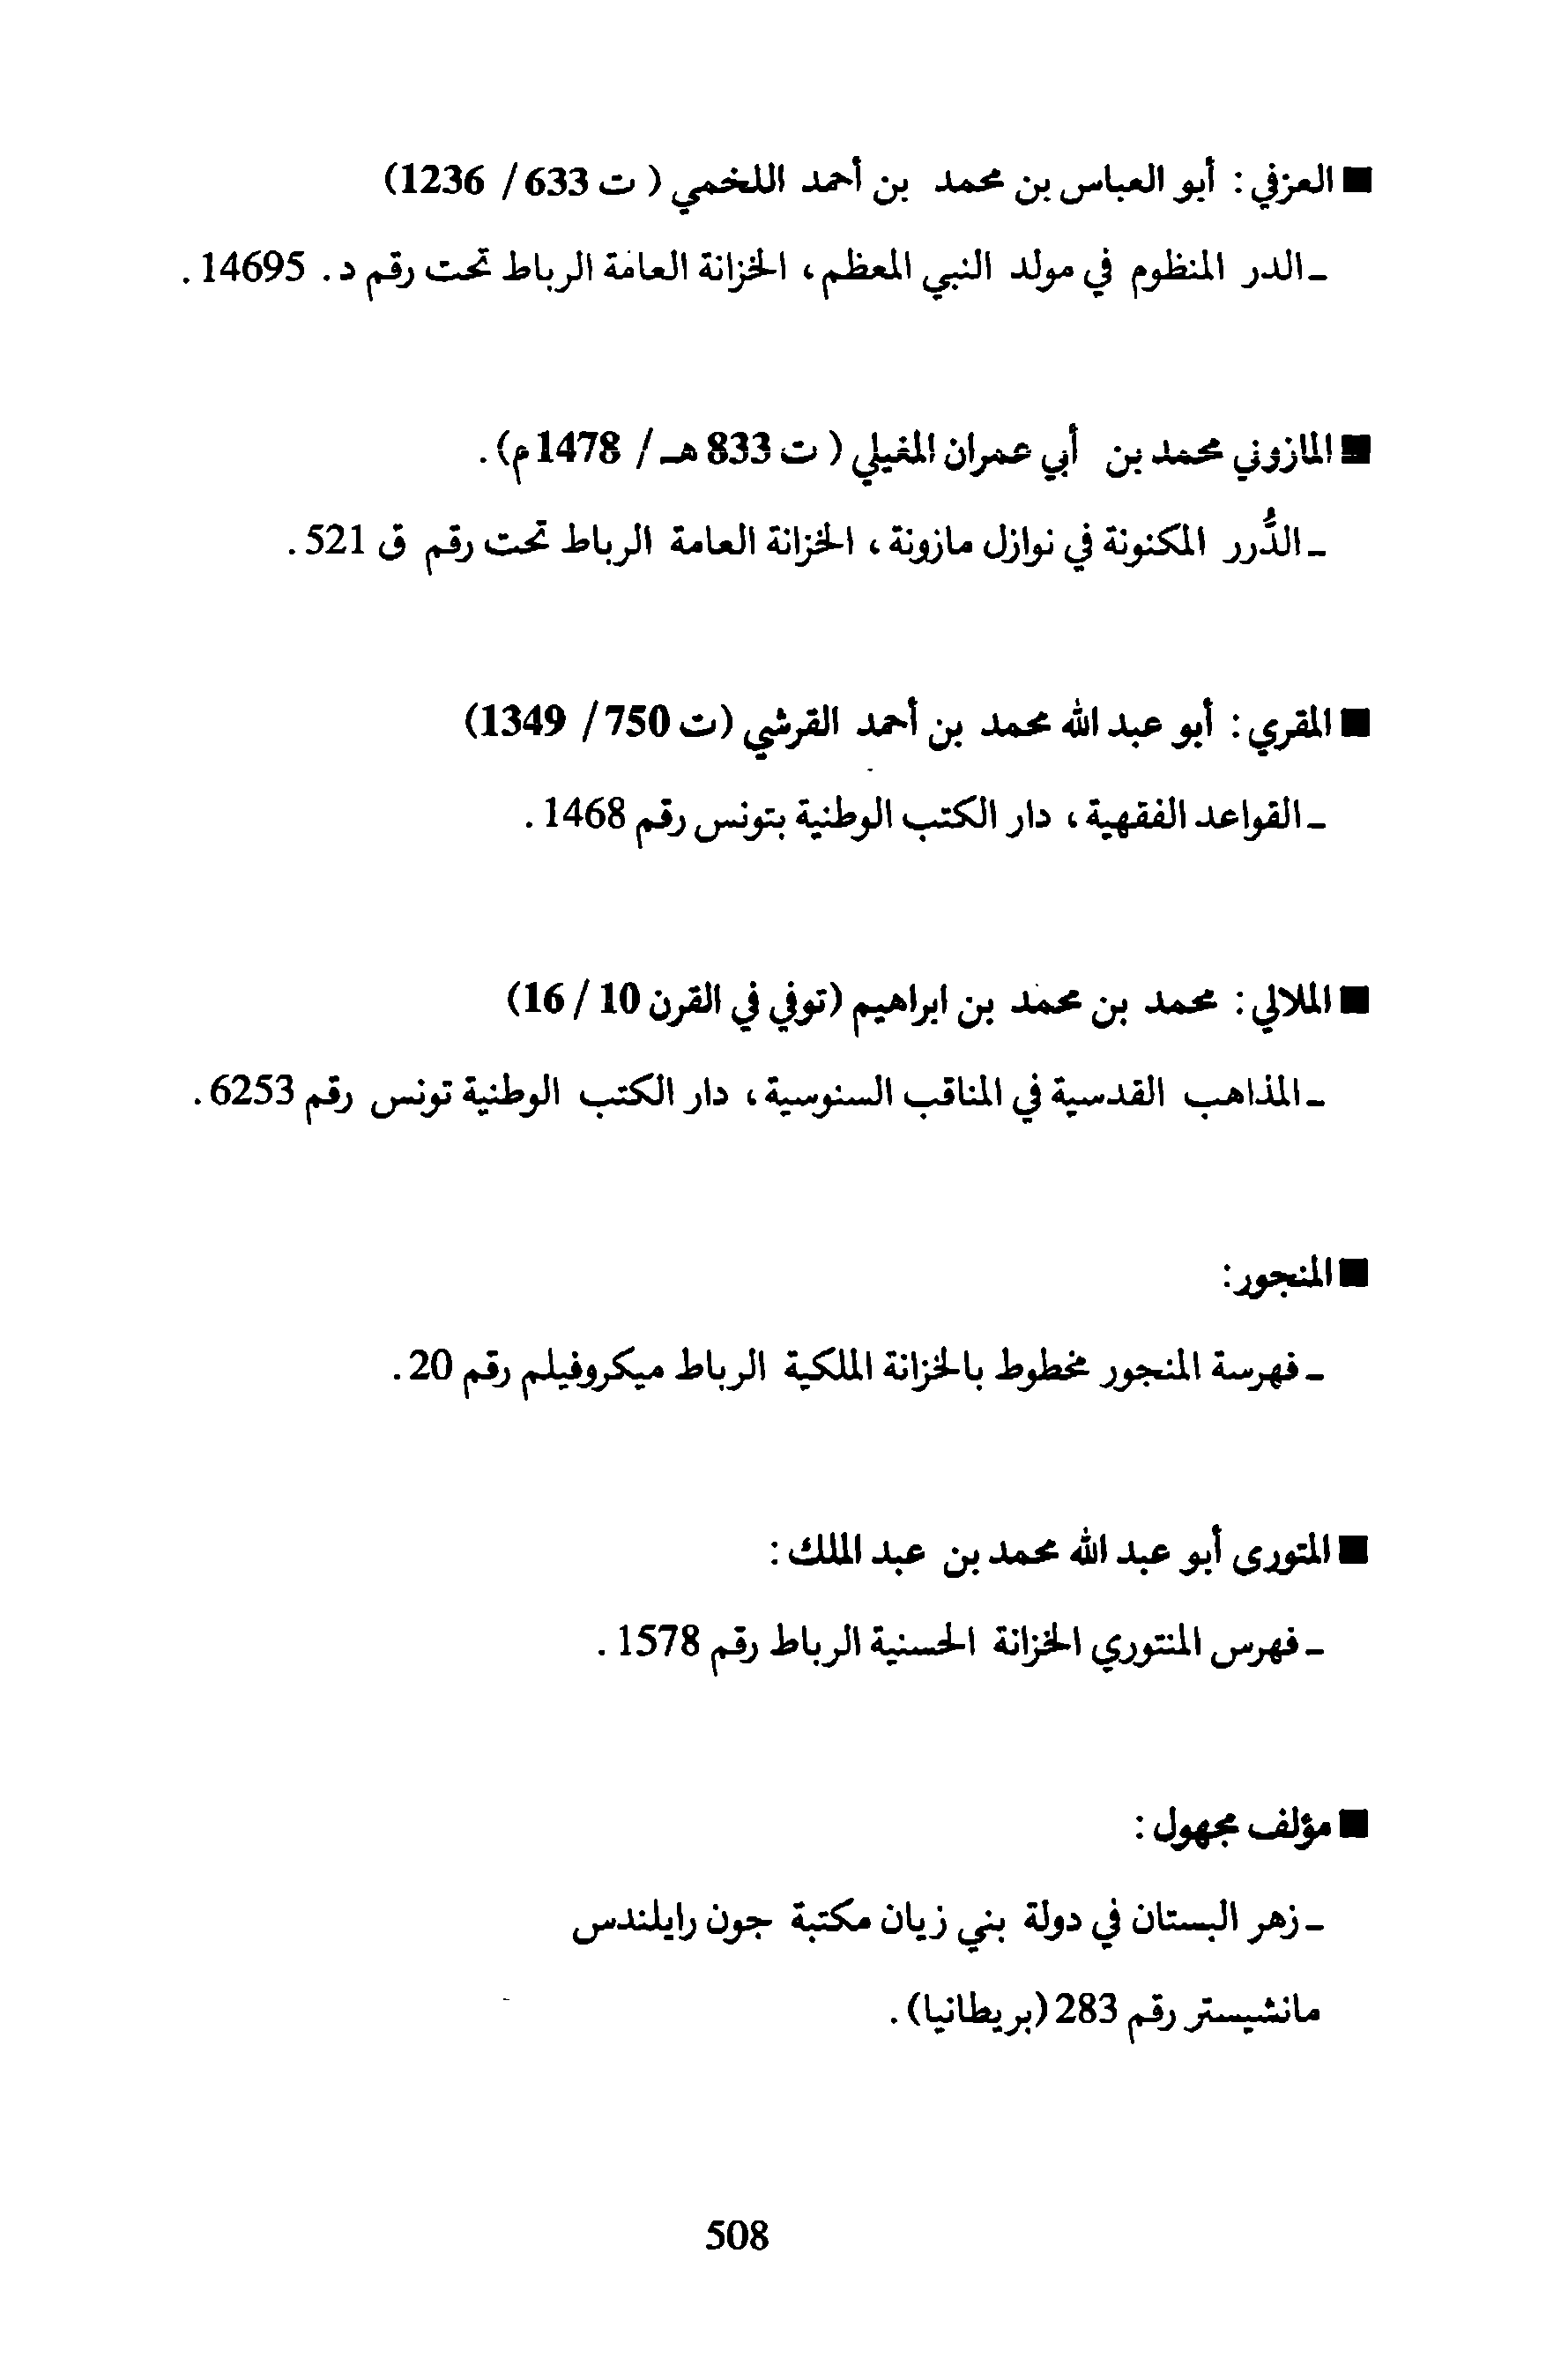 ■ العزفي : أبو العباس بن محمد بن أحمد اللخمي ( ت 633 / 1236)
ـ الدر المنظوم في مولد النبي المعظم ، الخزانة العامة الرباط تحت رقم د . 14695 .
■ المازوني محمد بن أبي عمران المغيلي ( ت 833 هـ / 1478 م) .
ـ الدُّرر المكنونة في نوازل مازونة ، الخزانة العامة الرباط تحت رقم ق 521 .
■ المقري : أبو عبد الله محمد بن أحمد القرشي (ت 750 / 1349)
ـ القواعد الفقهية ، دار الكتب الوطنية بتونس رقم 1468 .
■ الملالي : محمد بن محمد بن ابراهيم (توفي في القرن 10 / 16)
ـ المذاهب القدسية في المناقب السنوسية ، دار الكتب الوطنية تونس رقم 6253 .
■ المنجور:
ـ فهرسة المنجور مخطوط بالخزانة الملكية الرباط ميكروفيلم رقم 20 .
■ المتورى أبو عبد الله محمد بن عبد الملك :
ـ فهرس المنتوري الخزانة الحسنية الرباط رقم 1578 .
■ مؤلف مجهول :
ـ زهر البستان في دولة بني زيان مكتبة جون رايلندس
مانشيستر رقم 283 (بريطانيا) .
508